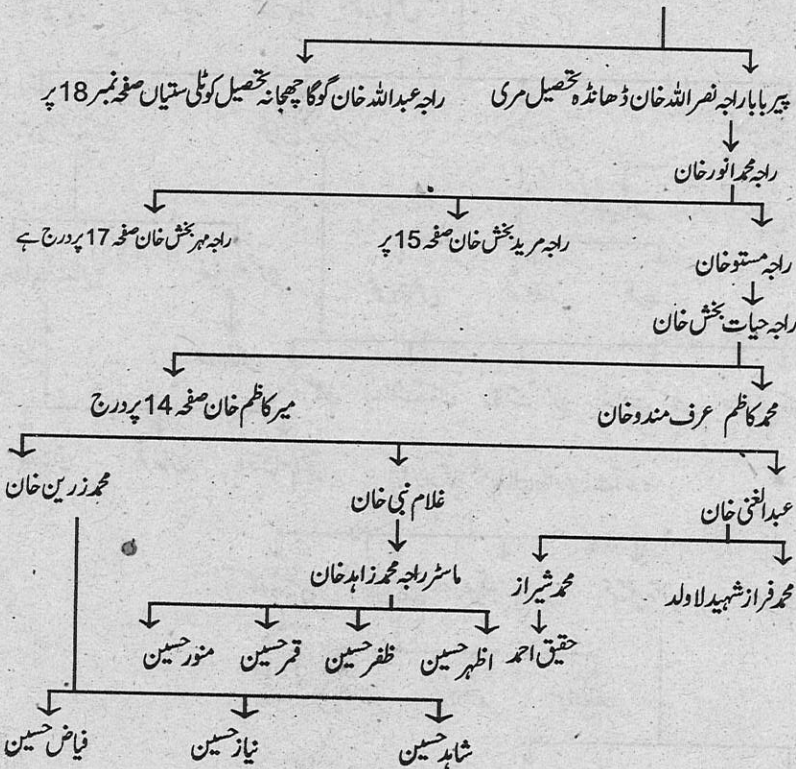 پیر بابا راجہ نصر اللہ خان ڈھانڈہ تحصیل مری راجہ عبد اللہ خان گوگا چھجانہ تحصیل کوٹلی ستیاں صفحہ نمبر 18 پر
راجہ محمد انور خان
راجہ مستو خان راجہ مرید بخش خان صفحہ 15 پر راجہ مہر بخش خان صفحہ 17 پر درج ہے
راجہ حیات بخش خان
محمد کاظم عرف مندو خان میر کاظم خان صفحہ 14 پر درج
عبدالغنی خان غلام نبی خان محمد زرین خان
محمد فراز شہید لاولد محمد شیراز ماسٹر راجہ محمد زاہد خان
حقیق احمد اظہر حسین ظفر حسین قمر حسین منور حسین
شاہد حسین نیاز حسین فیاض حسین